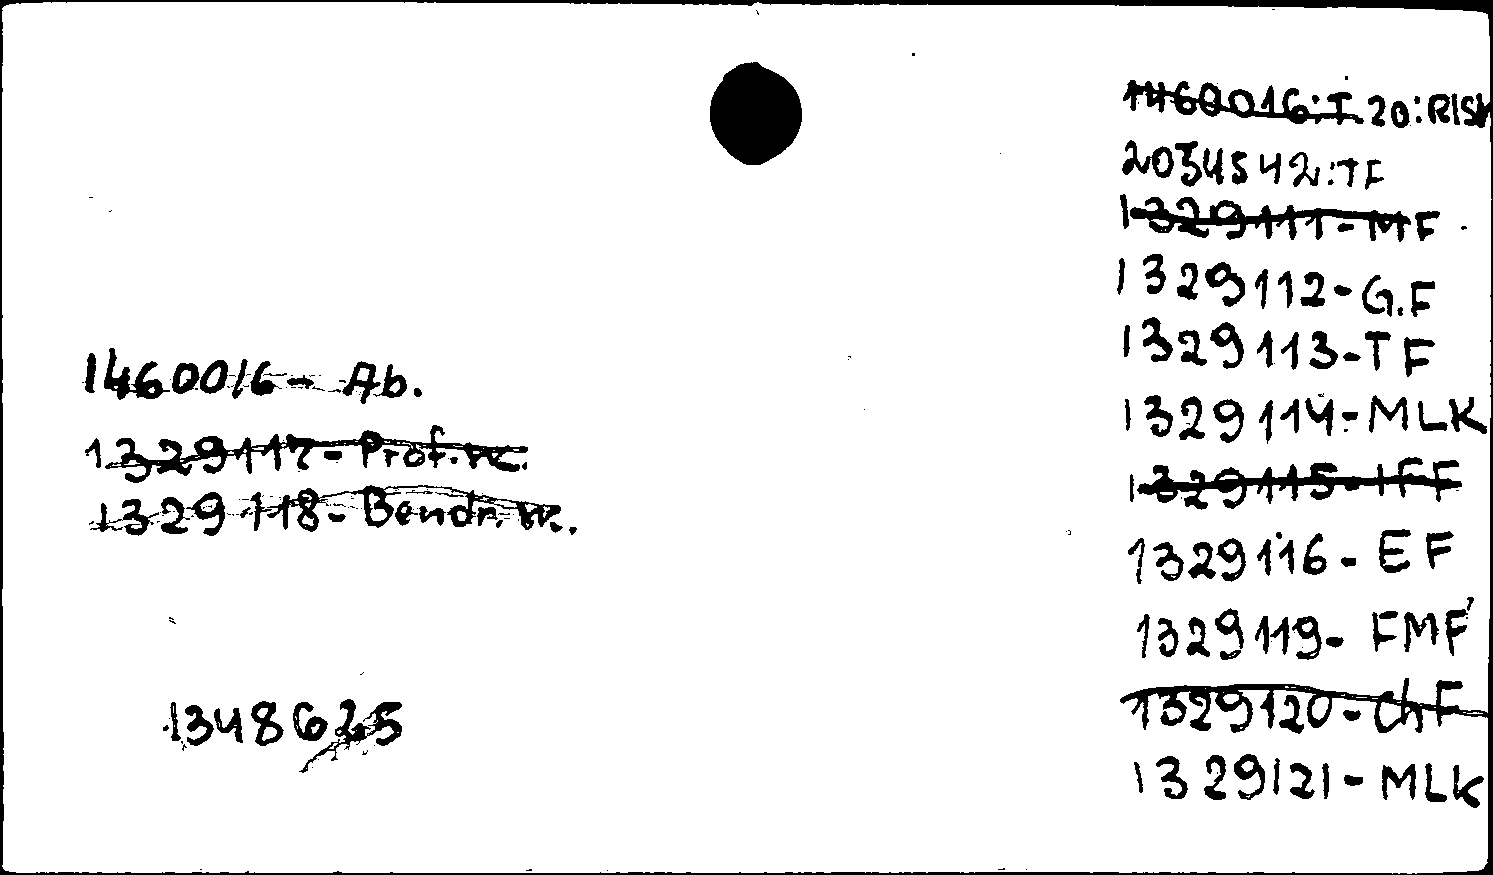 1460016 - Ab.
1329117 - Prof.
1329118 - Bendr.
1348625
1460016:T.20:RISK
2034542:TF
1329111-MF
1329112-G.F
1329113-TF
1329114-MLK
1329115-IFF
1329116-EF
1329119-FMF
1329120-ChF
1329121-MLK